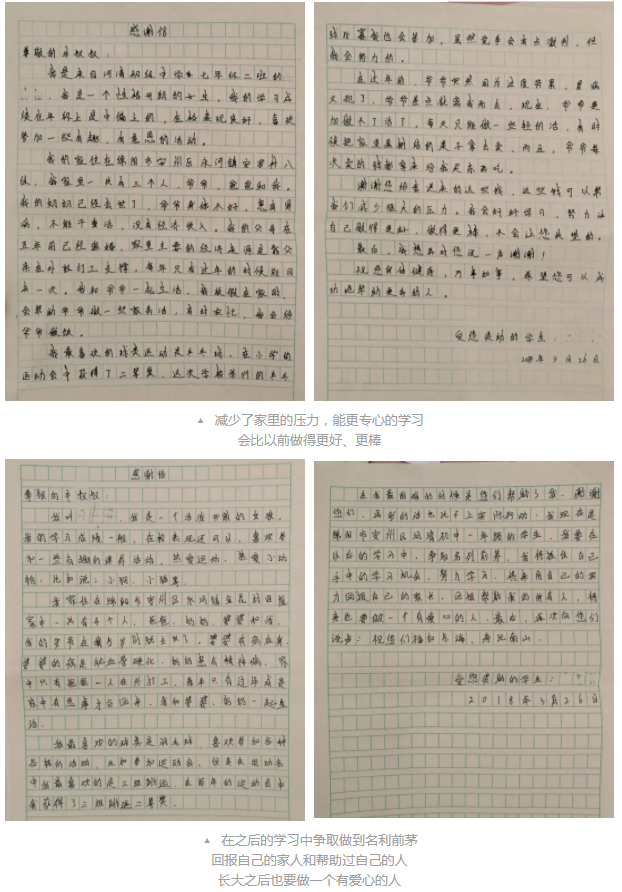 感谢信
尊敬的辛叔叔：
我是来自河清初级中学七年级二班的
我是一个活泼开朗的女生，我的学习成
绩在年级上是中偏上的，在校表现良好，喜欢
参加一些有趣，有意思的活动。
我的家住在绵阳市安州区河镇安罗村八
组，我家里一共有三个人，爷爷，爸爸和我。
我的奶奶已经去世了，爷爷身体不好，患有胃
病，不能干重活，没有经济收入。我的父母在
五年前已经离婚，家里主要的经济来源是靠父
亲在外面打工支撑，每年只有过年的时候能回
去一次。我和爷爷一起生活，我放假在家时，
会帮助爷爷做一些家务活，有时农忙，我会给
爷爷做饭。
我最喜欢的球类运动是乒乓球，在小学的
运动会中获得了二等奖，这次学校举行的乒乓
球比赛我也会参加，虽然竞争会有点激烈，但
我会努力的。
在过年前，爷爷突然因为过度劳累，胃病
又犯了，爷爷差点就离我而去。现在，爷爷更
加做不了活了，每天只能做一些轻的活，有时
候把家里种的菜子拿去卖，而且，爷爷每
次卖的钱都拿来给我买东西吃。
谢谢您给我送来的这些钱，这些钱可以帮
我们减少很大的压力。我会好好学习，努力让
自己做得更好，做得更棒，不会让您失望的。
最后，我想再对您说一声谢谢！
祝您身体健康，万事如意，希望您可以成
功地帮助更多的人。
受您奖助的学生：
2018年3月26日
▲ 减少了家里的压力，能更专心的学习
会比以前做得更好、更棒
感谢信
尊敬的辛叔叔：
我叫，我是一个活泼开朗的女孩。
我的学习成绩一般，在校表现还可以，喜欢参
加一些有趣的课外活动，热爱运动，热爱小动
物，比如说：小狗、小猫等。
我家住在绵阳市安州区河清镇金花村四组
家中一共有4个人，爸爸、妈妈、婆婆和我。
我的爷爷在我5岁时就去世了。婆婆有高血压，
婆婆的病是脑血管硬化，妈妈患有精神病，家
中只有爸爸一人在外打工，每年只有过年或是
家中有急事才会回来，我和婆婆、妈妈一起生
活。
我最喜欢的球类是羽毛球，喜欢参加各种
各样的活动，比如参加运动会，但是在运动会
中我最喜欢的是三级跳远，在前年的运动会中
我获得了三级跳远二等奖。
在我最困难的时候是您们帮助了我，谢谢
您们，再多的话也比不上实际行动，我现在是
绵阳市安州区河清初中一年级的学生，我要在
以后的学习中，争取名列前茅。我将抓住自己
手中的学习机会，努力学习，将来用自己的实
力回报自己的家长，回报帮助我的所有人，将
来也要做一个有爱心的人。最后，再次向您们
说声：祝您们福如东海、寿比南山。
受您奖助的学生：
2018年3月26日
▲ 在之后的学习中争取做到名利前茅
回报自己的家人和帮助过自己的人
长大之后也要做一个有爱心的人